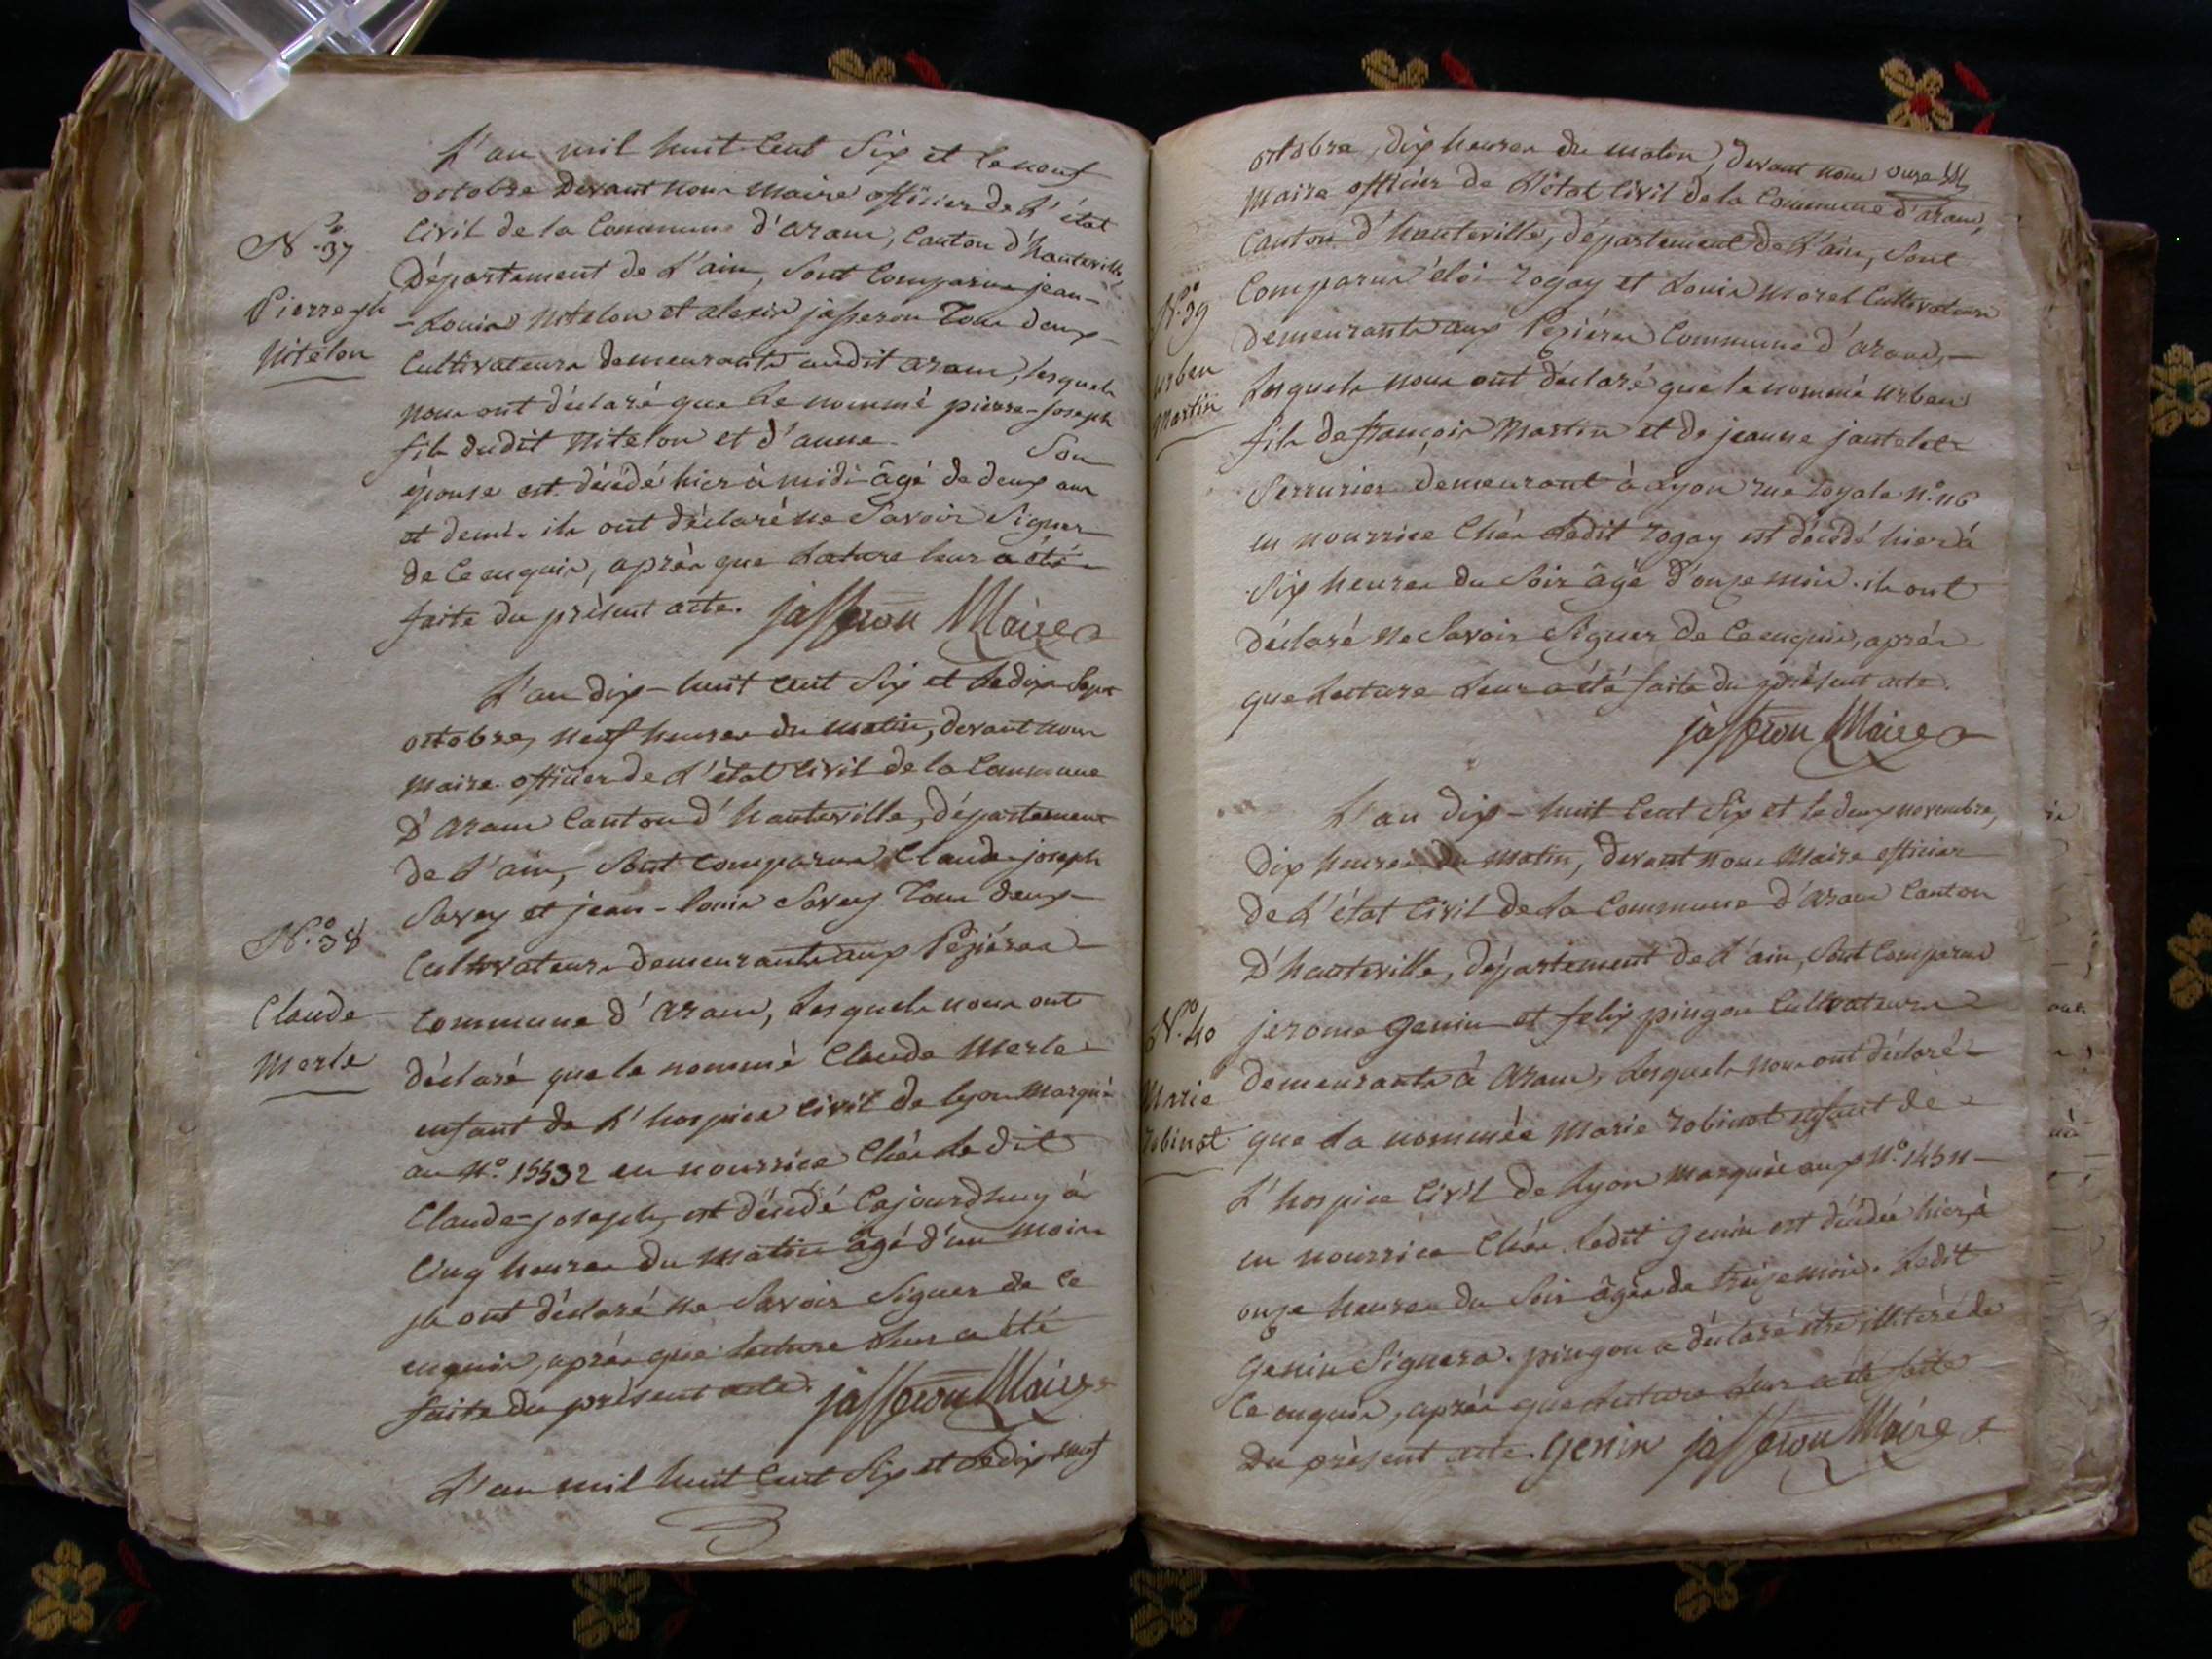 L'an mil huit Cent Six et le neuf
octobre devant nous maire officier de L'état
Civil de la Commune d'aranc, Canton d'hauteville,
N.o 37
Département de L'ain, Sont Comparus jean-
Pierre jh
-Louis Nitelon et alexis jasseron Tous deux
Nitelon
Cultivateurs demeurants audit aranc, lesquels
nous ont déclaré que Le nommé pierre-joseph
fils dudit Nitelon et d'anne Son
épouse est décédé hier à midi âgé de deux ans
et demi. ils ont déclaré ne Savoir Signer
de Ce enquis, après que Lecture leur a été
faite du présent acte. jasseron Maire
L'an dix-huit cent Six et Le dix Sept
octobre, neuf heures du matin, devant nous
maire officier de L'état Civil de la Commune
D'aranc Canton d'hauteville, département
de L'ain, Sont Comparus Claude-joseph
Savey et jean-louis Savey Tous deux
N.o 38
Cultivateurs demeurants aux Pézières
Claude
Commune d'aranc, Lesquels nous ont
Merle
déclaré que le nommé Claude Merle
enfant de L'hospice Civil de lyon marqué
au N.o 15532 en nourrice Chés Ledit
Claude-joseph est décédé Cejourdhuy à
Cinq heures du matin âgé d'un mois
ils ont déclaré ne Savoir Signer de Ce
enquis, après que lecture leur a été
faite du présent acte. jasseron Maire
L'an mil huit Cent Six et Le dix neuf
octobre, dix heures du matin, devant nous
Maire officier de L'état Civil de la Commune d'aranc,
Canton d'hauteville, département de L'ain, Sont
N.o 39
Comparus éloi rogay et Louis Morel Cultivateurs
demeurants aux Pézières Commune d'aranc,
urben
Lesquels nous ont déclaré que le nommé urben
Martin
fils de françois Martin et de jeanne
Serrurier demeurant à Lyon rue royale N.o 116
en nourrice Chés Ledit rogay est décédé hier à
Six heures du Soir âgé d'onze mois. ils ont
déclaré ne Savoir Signer de Ce enquis, après
que Lecture Leur a été faite du présent acte.
jasseron Maire
L'an dix-huit Cent Six et le deux novembre,
dix heures du matin, devant nous Maire officier
de L'état Civil de La Commune d'aranc Canton
D'hauteville, département de L'ain, Sont Comparus
N.o 40
jerome genin et felix pingon Cultivateurs
Marie
demeurants à aranc, Lesquels nous ont déclaré
robinot
que La nommée Marie robinot enfant de
L'hospice Civil de Lyon marquée aux N.o
en nourrice Chés Ledit genin est décédée hier, à
onze heures du Soir âgée de treize mois. Ledit
genin Signera. pingon a déclaré être illitéré de
Ce enquis, après que Lecture Leur a été faite
Du présent acte. genin jasseron Maire